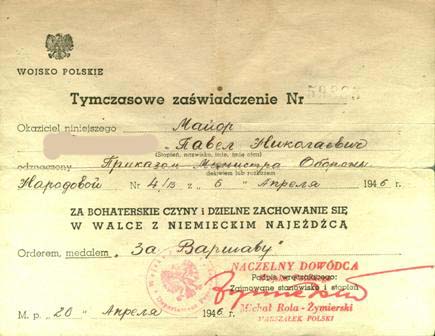 WOJSKO POLSKIE
Tymczasowe zaświadczenie Nr
Okaziciel niniejszego Майор
Павел Николаевич
(Stopień, nazwisko, imię, imię ojca)
odznaczony Приказом Министра Обороны
dekretem lub rozkazem
Народовой Nr 4/3 z 6 Апреля 1946 r.
ZA BOHATERSKIE CZYNY i DZIELNE ZACHOWANIE SIĘ
W WALCE Z NIEMIECKIM NAJEŹDŹCĄ
Orderem, medalem "За Варшаву"
NACZELNY DOWÓDCA
Podpis wręczającego:
Zajmowane stanowisko i stopień
Michał Rola-Żymierski
MARSZAŁEK POLSKI
M. p. 20 Апреля 1946 r.